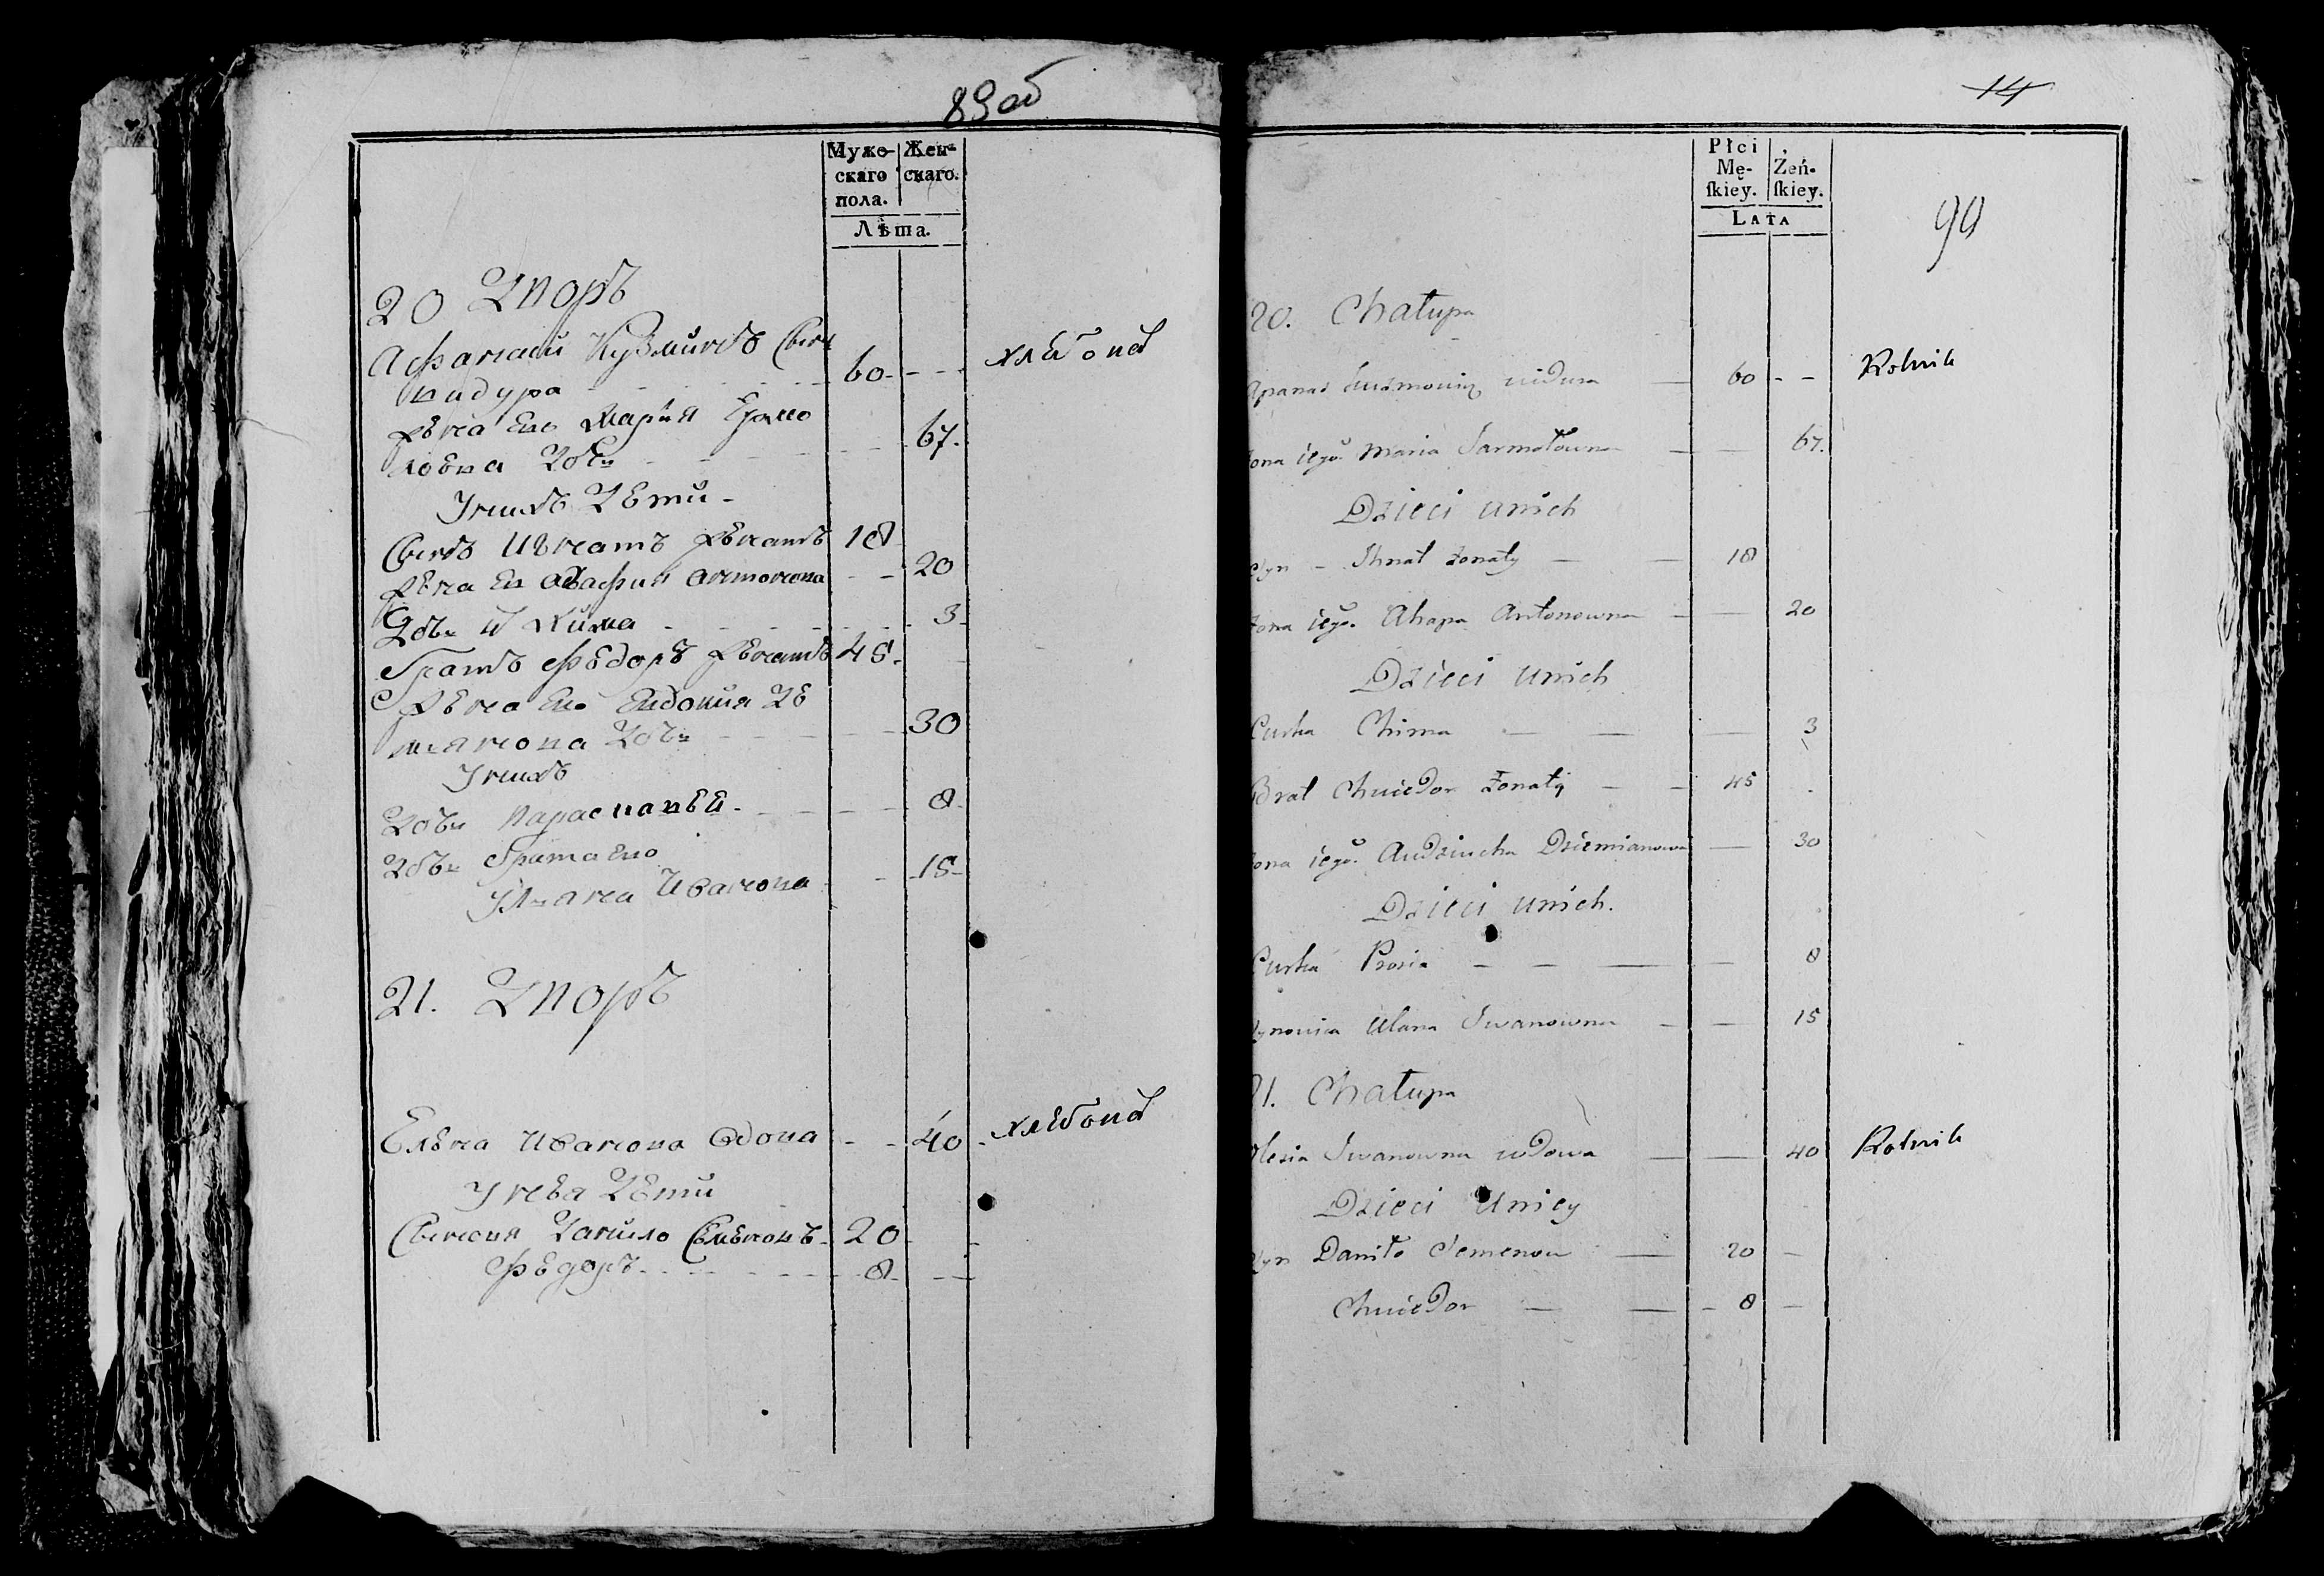 89об
Мужескаго пола.
Женскаго.
Лѣта.
20 Дворъ
Афанасий Кузминъ Сынъ
60
хлебопа
жена его Мария Ермо
ловна Дочь
67.
У нихъ Дети
Сынъ Игнатъ женатъ 18
жена ег Агафия Антонова 20
Дочь Химa 3
Братъ Федоръ женатъ 45
жена его Евдокия Де
мянова Дочь 30
У нихъ
Дочь Парасковья 8
Дочь Брата его
Уляна Иванова 15
21. Дворъ
Елена Иванова вдова 40 хлебопа
У нея Дети
Сыновя Данило Семеновъ 20
Федоръ 8
14
Płci Męſkiey.
Żeńſkiey.
Lata
90
20. Chałupa
Apanas 60 Rolnik
żona iego Maria Jarmołowna 67.
Dzieci unich
Syn Ihnat żonaty 18
żona iego. Ahapa Antonowna 20
Dzieci unich
Curka Chima 3
Brat Chwiedor żonaty 45
żona iego. Audziucha Dziemianowna 30
Dzieci unich.
Curka Prosia 8
Synowica Ulana Iwanowna 15
21. Chałupa
Olesia Iwanowna wdowa 40 Rolnik
Dzieci Uniey
Syn Daniło Semenow 20
Chwiedor 8